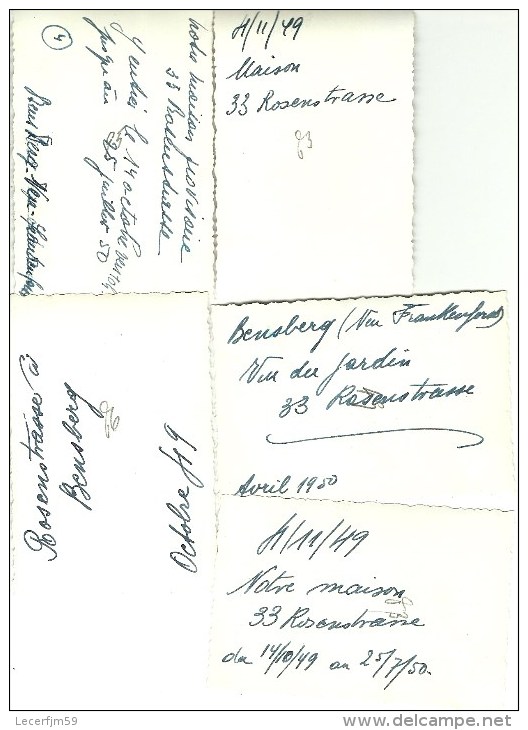 4
notre maison provisoire
33 Rosenstrasse
J'entrai le 14 octobre
jusqu'au 25 juillet 50
4/11/49
Maison
33 Rosenstrasse
Rosenstrasse à
Bensberg
Octobre 49
Bensberg (Neu Frankenforst)
Vue du jardin
33 Rosenstrasse
Avril 1950
4/11/49
Notre maison
33 Rosenstrasse
du 14/10/49 au 25/7/50.
Lecerfjm59
delcampe.net